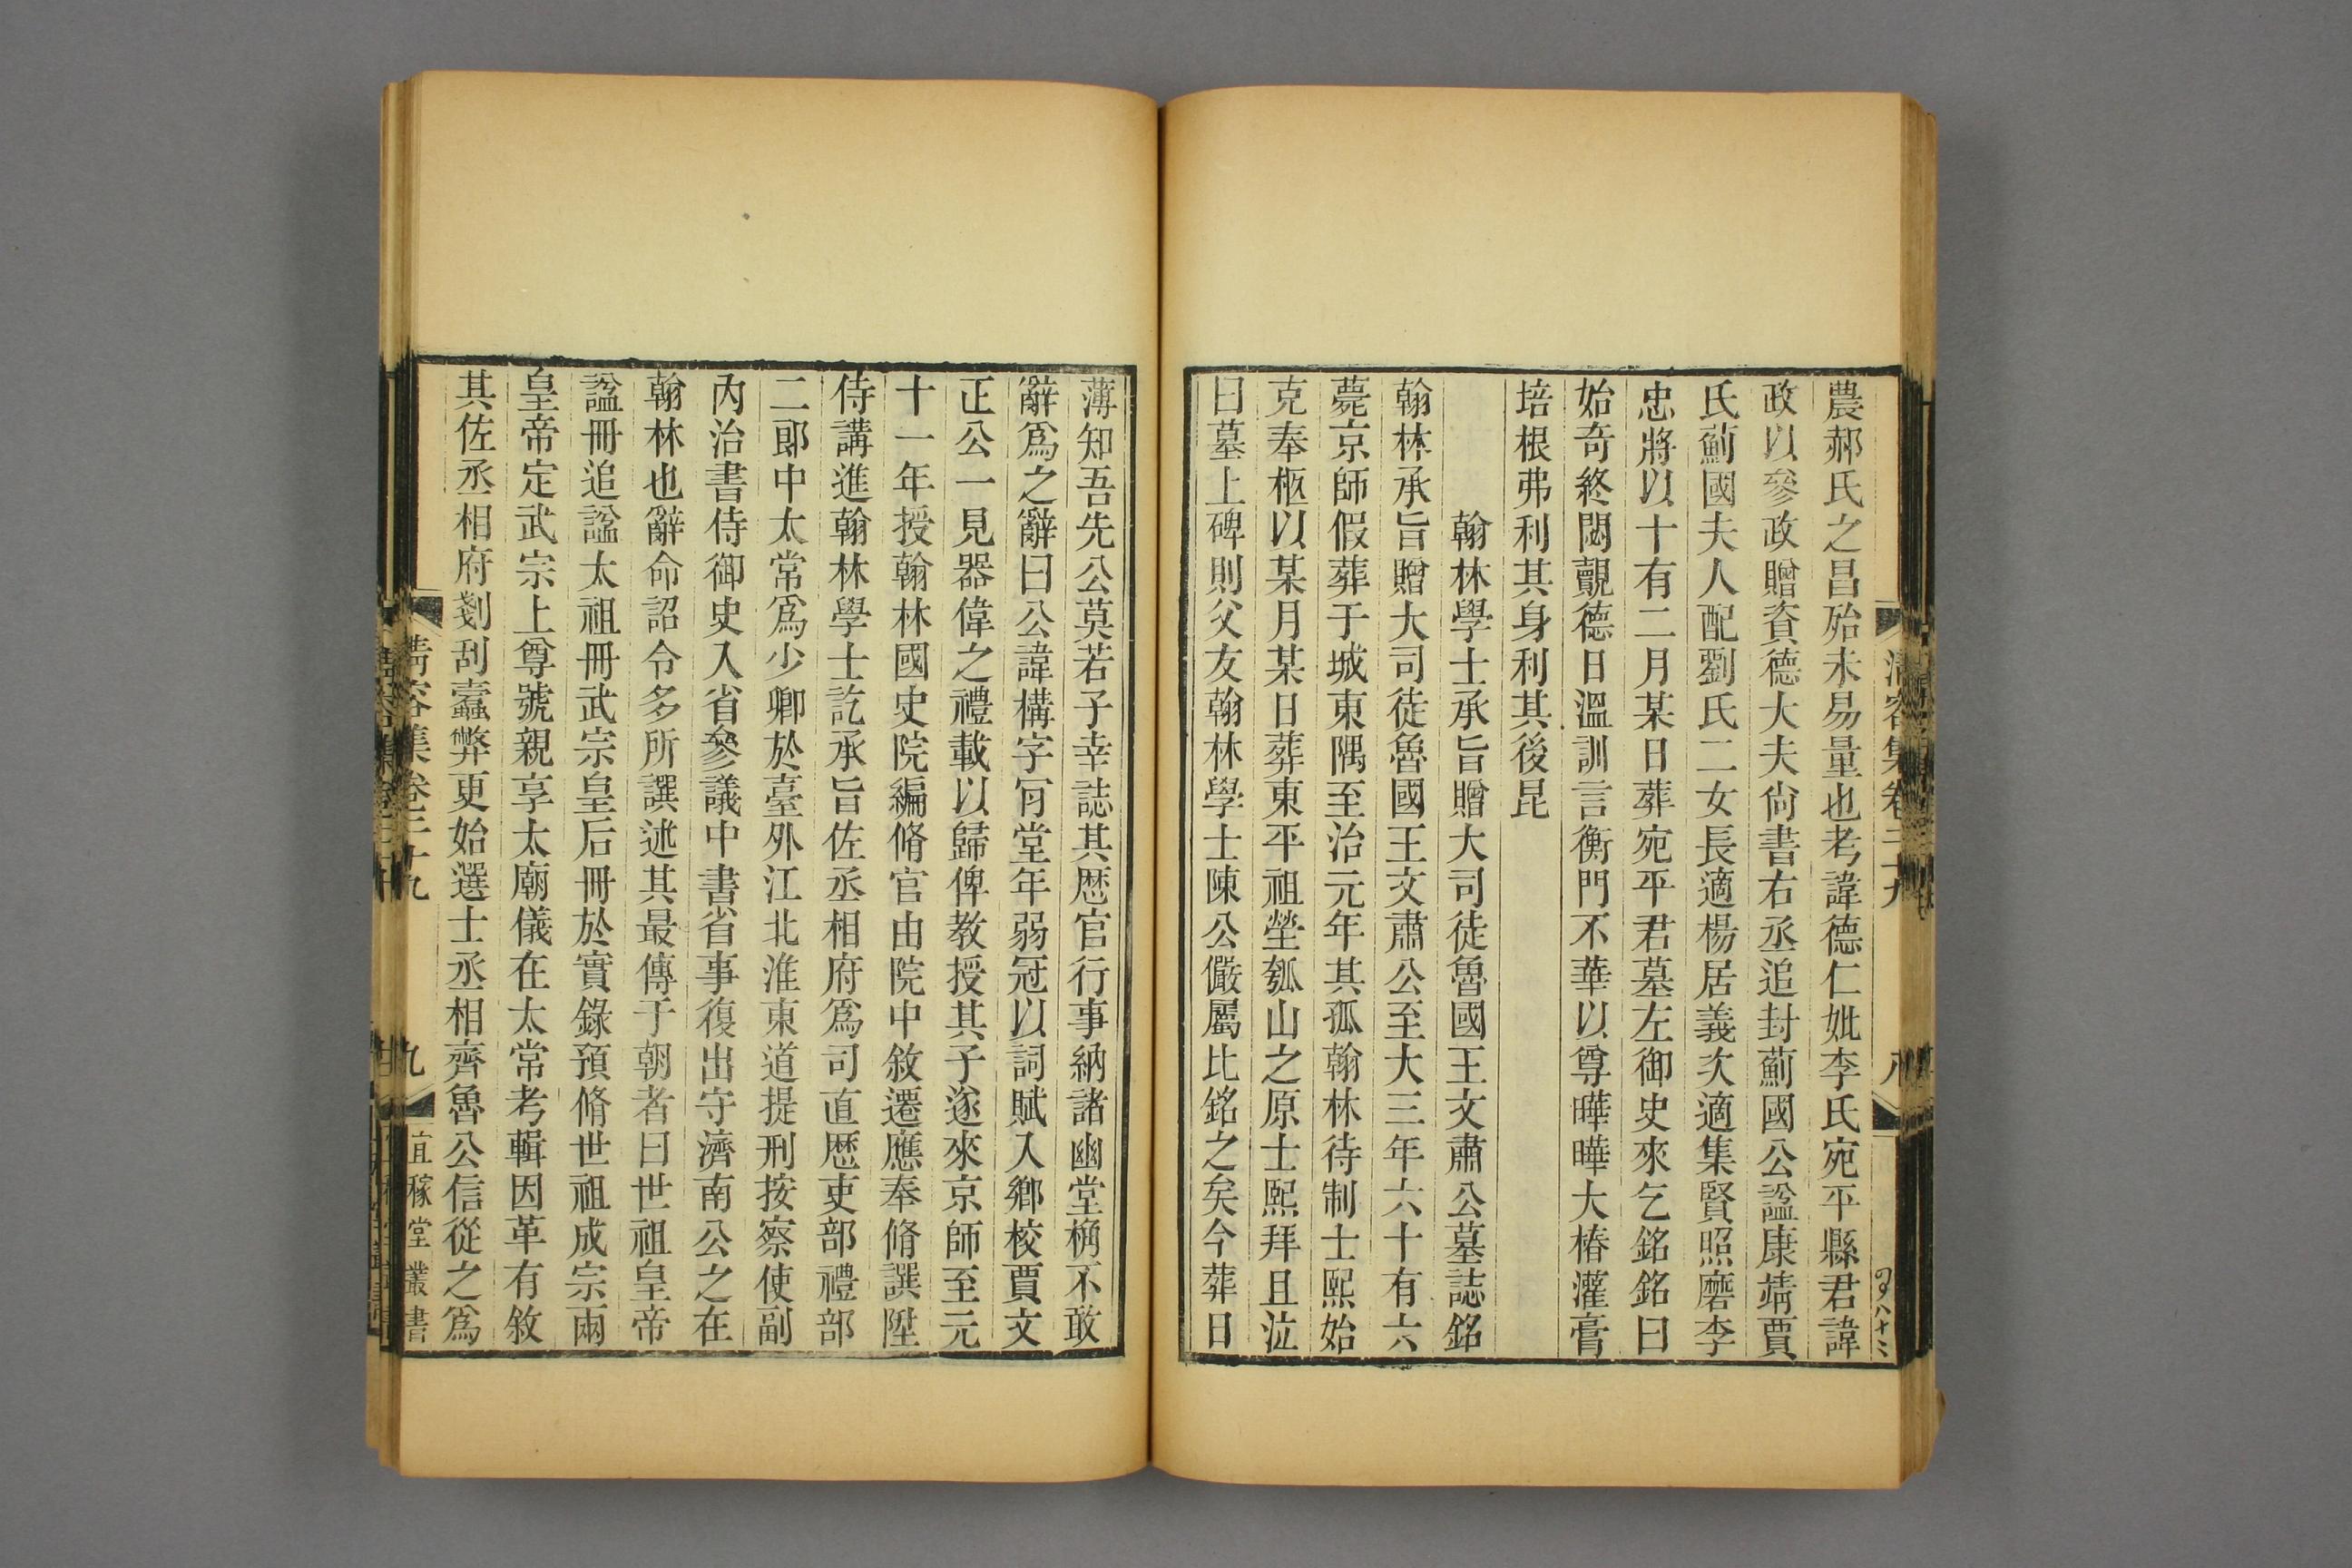 清容集卷二十九
八
農郝氏之昌殆未易量也考諱德仁妣李氏宛平縣君諱
政以參政贈資德大夫尙書右丞追封薊國公諡康靖賈
氏薊國夫人配劉氏二女長適楊居義次適集賢照磨李
忠將以十有二月某日葬宛平君墓左御史來乞銘銘曰
始奇終閟覿德日溫訓言衡門不華以尊曄曄大椿灌膏
培根弗利其身利其後昆
翰林學士承旨贈大司徒魯國王文肅公墓誌銘
翰林承旨贈大司徒魯國王文肅公至大三年六十有六
薨京師假葬于城東隅至治元年其孤翰林待制士熙始
克奉柩以某月某日葬東平祖塋瓠山之原士熙拜且泣
曰墓上碑則父友翰林學士陳公儼屬比銘之矣今葬日
薄知吾先公莫若子幸誌其歷官行事納諸幽堂桷不敢
辭爲之辭曰公諱構字肎堂年弱冠以詞賦入鄉校賈文
正公一見器偉之禮載以歸俾教授其子遂來京師至元
十一年授翰林國史院編脩官由院中敘遷應奉脩譔陞
侍講進翰林學士訖承旨佐丞相府爲司直歷吏部禮部
二郎中太常爲少卿於臺外江北淮東道提刑按察使副
內治書侍御史入省參議中書省事復出守濟南公之在
翰林也辭命詔令多所譔述其最傳于朝者曰世祖皇帝
諡冊追諡太祖冊武宗皇后冊於實錄預脩世祖成宗兩
皇帝定武宗上尊號親享太廟儀在太常考輯因革有敘
其佐丞相府剗刮蠹弊更始選士丞相齊魯公信從之爲
清容集卷二十九
九
宜稼堂叢書